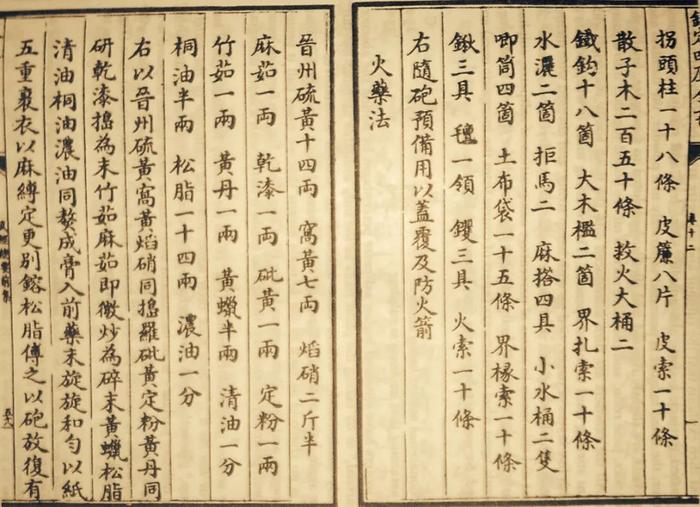 拐頭柱一十八條 皮簾八片 皮索一十條
散子木二百五十條 救火大桶二
鐵鈎十八箇 大木櫃二箇 界扎索一十條
水濃二箇 拒馬二 麻搭四具 小水桶二隻
唧筒四箇 土布袋一十五條 界椽索一十條
鍬三具 氊一領 钁三具 火索一十條
右隨砲預備用以蓋覆及防火箭
火藥法
晉州硫黃十四兩 窩黃七兩 焰硝二斤半
麻茹一兩 乾漆一兩 砒黃一兩 定粉一兩
竹茹一兩 黃丹一兩 黃蠟半兩 清油一分
桐油半兩 松脂一十四兩 濃油一分
右以晉州硫黃窩黃焰硝同搗羅砒黃定粉黃丹同
研乾漆搗為末竹茹麻茹即微炒為碎末黃蠟松脂
清油桐油濃油同熬成膏入前藥末旋旋和勻以紙
五重裹衣以麻縛定更別鎔松脂傅之以砲放復有